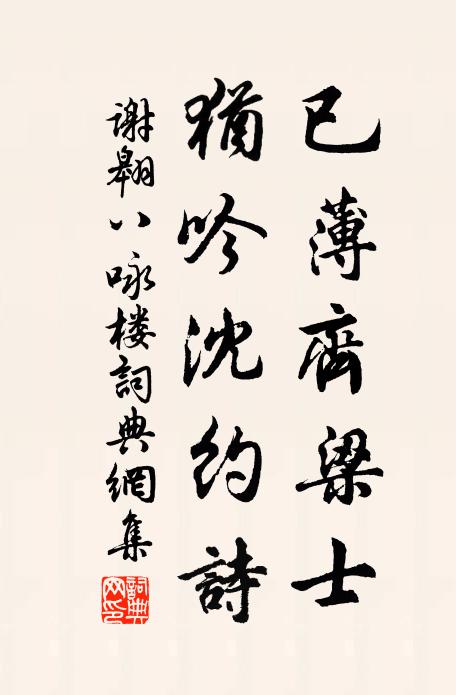 已薄齊梁士
猶吟沈約詩
謝翱八咏楼詞典網集
詞典网印